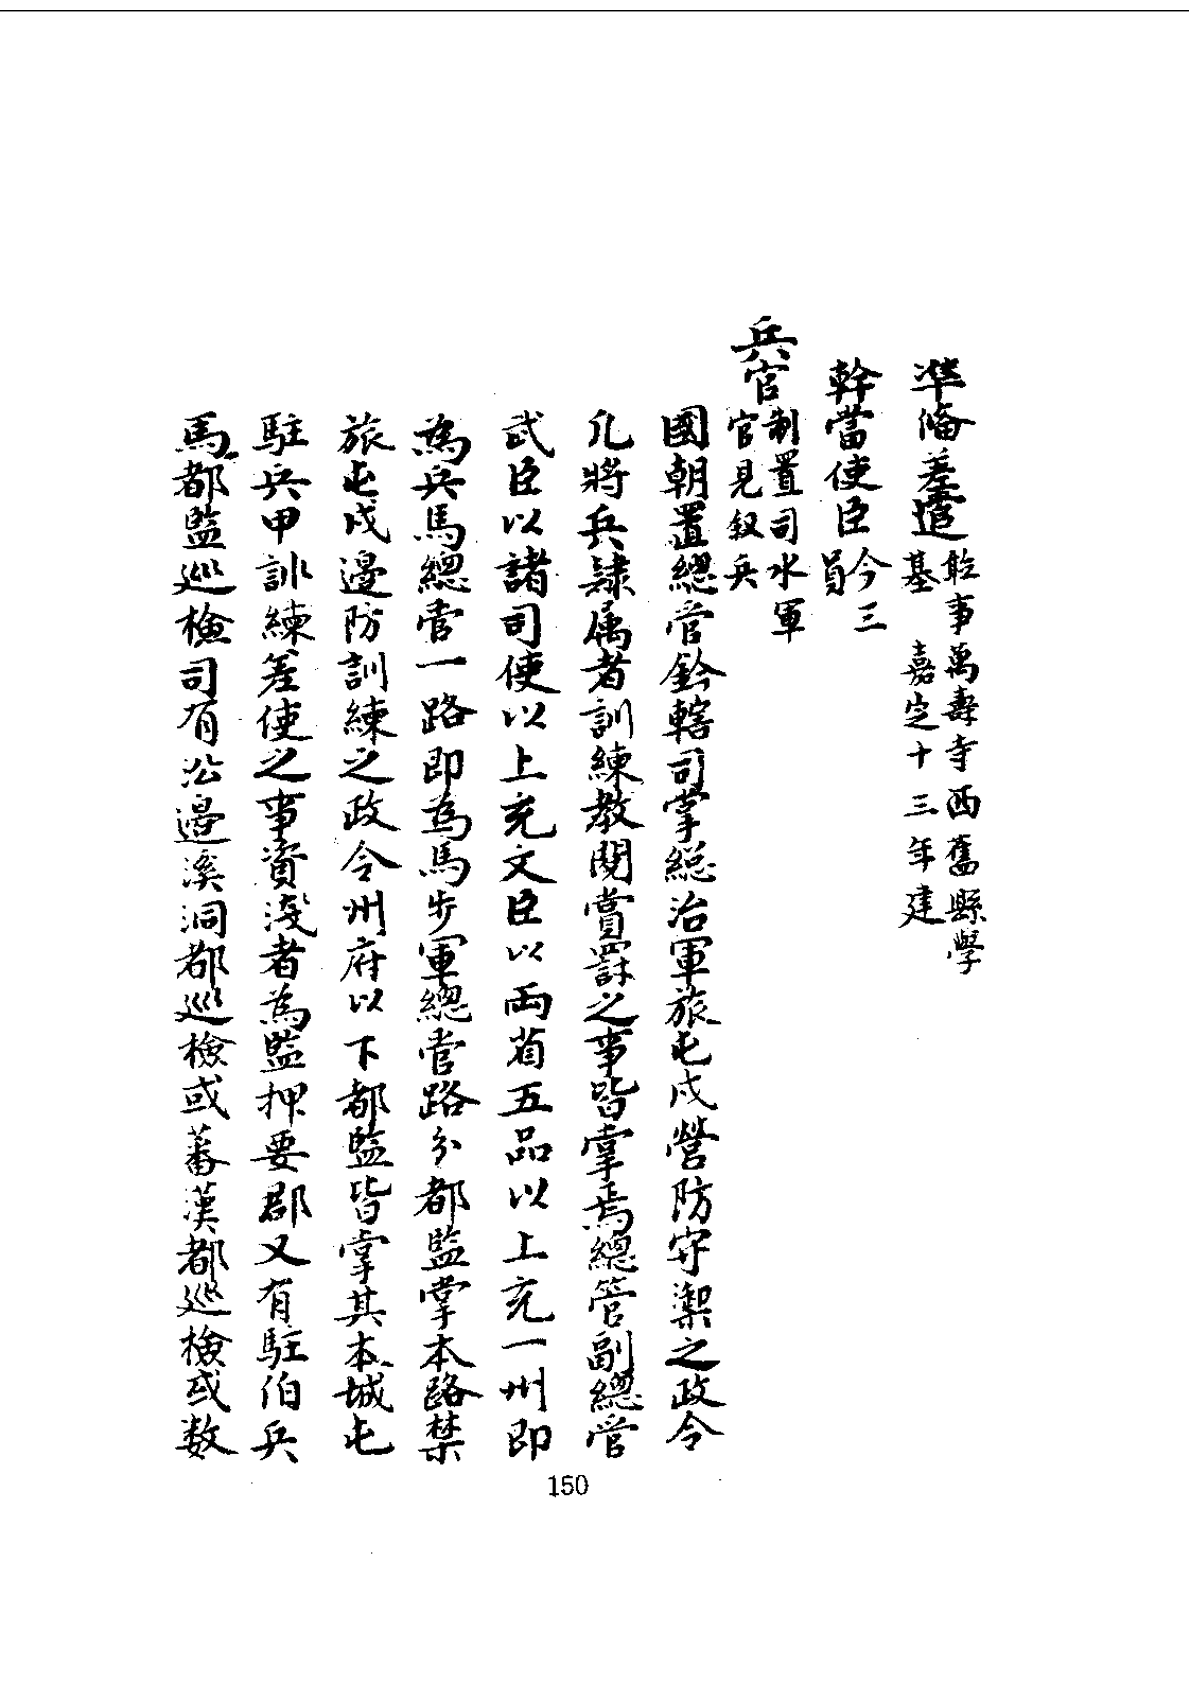 準備差遣 廨事萬壽寺西舊縣學
基 嘉定十三年建
幹當使臣 今三
員
兵官 制置司水軍
官見叙兵
國朝置總管鈐轄司掌總治軍旅屯戍營防守禦之政令
凡將兵隷属者訓練教閱賞罰之事皆掌焉總管副總管
武臣以諸司使以上充文臣以兩省五品以上充一州即
為兵馬總管一路即為馬步軍總管路分都監掌本路禁
旅屯戍邊防訓練之政令州府以下都監皆掌其本城屯
駐兵甲訓練差使之事資淺者為監押要郡又有駐伯兵
馬都監巡檢司有沿邊溪洞都巡檢或蕃漢都巡檢或数
150